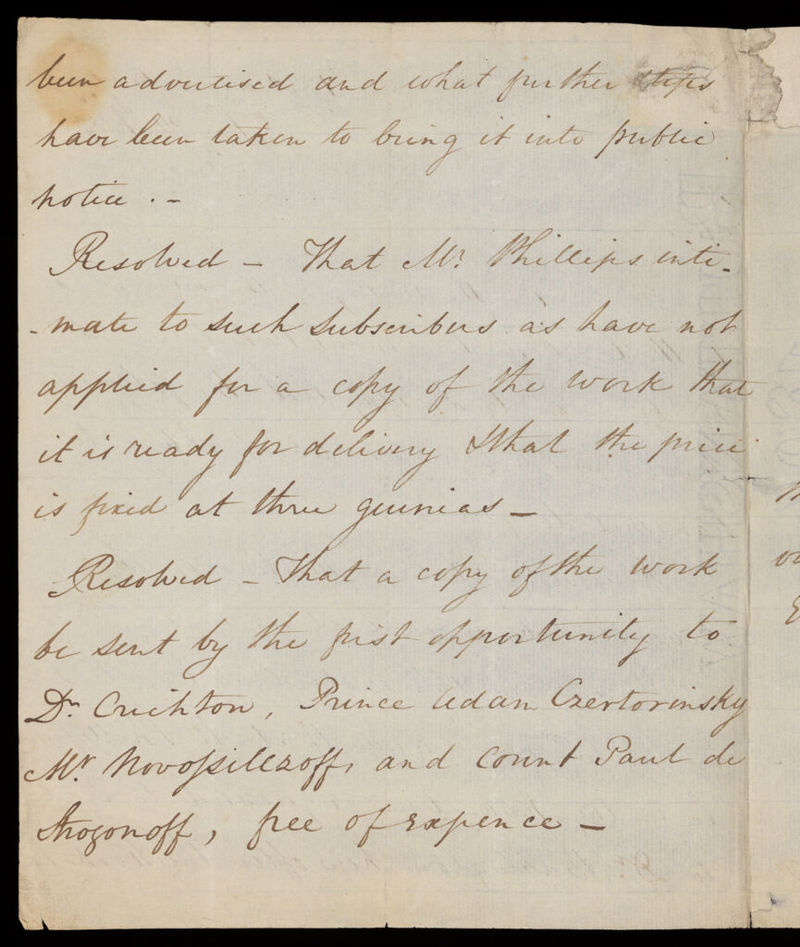 been advertised and what further steps
have been taken to bring it into public
notice . -
Resolved - That Mr. Phillips inti-
-mate to such subscribers as have not
applied for a copy of the work that
it is ready for delivery & that the price
is fixed at three guineas -
Resolved - That a copy of the work
be sent by the first opportunity to
Dr. Crichton, Prince Adam Czertorinsky
Mr. Novossilczoff, and Count Paul de
Strogonoff, free of expence -